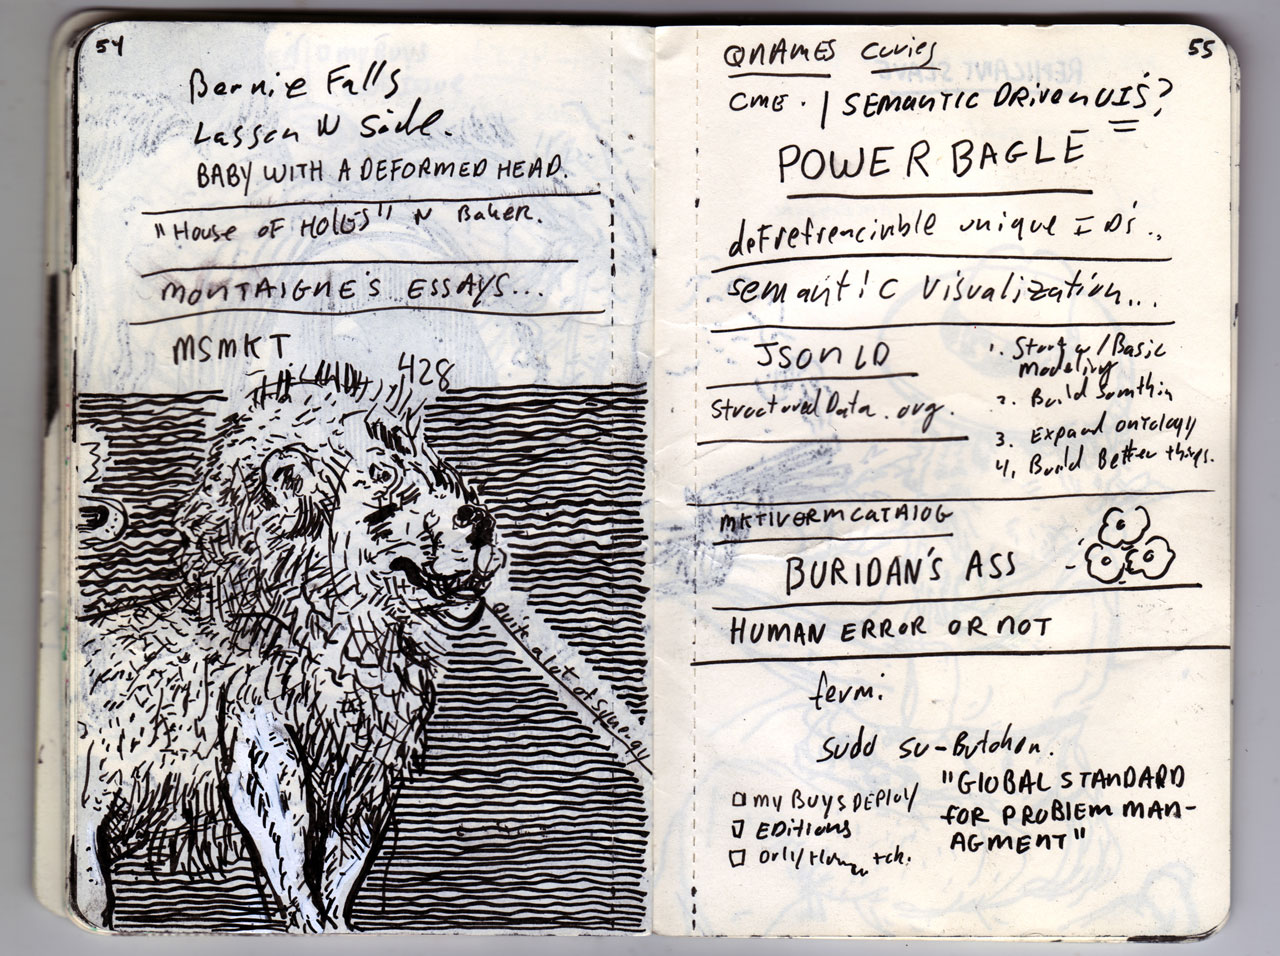 54
Bernie Falls
Lassen N Side.
BABY WITH A DEFORMED HEAD.
"House OF HOLES" N Baker.
MONTAIGNE'S ESSAYS...
MSMKT
428
quite a lot of synergy
55
QNAMES Curies
CME. / SEMANTIC DRIVEN UIS?
POWER BAGLE
defrefrencinble unique IDs..
semantic visualization...
JSON LD
StructuredData.org.
1. Start w/Basic
Modeling
2. Build Somthin
3. Expand ontology
4, Build Better things.
MKTIVERMCATALOG
BURIDAN'S ASS
HUMAN ERROR OR NOT
fermi
sudd su-Butchan.
"GLOBAL STANDARD
FOR PROBLEM MAN-
AGMENT"
MY BUYS DEPLOY
EDITIONS